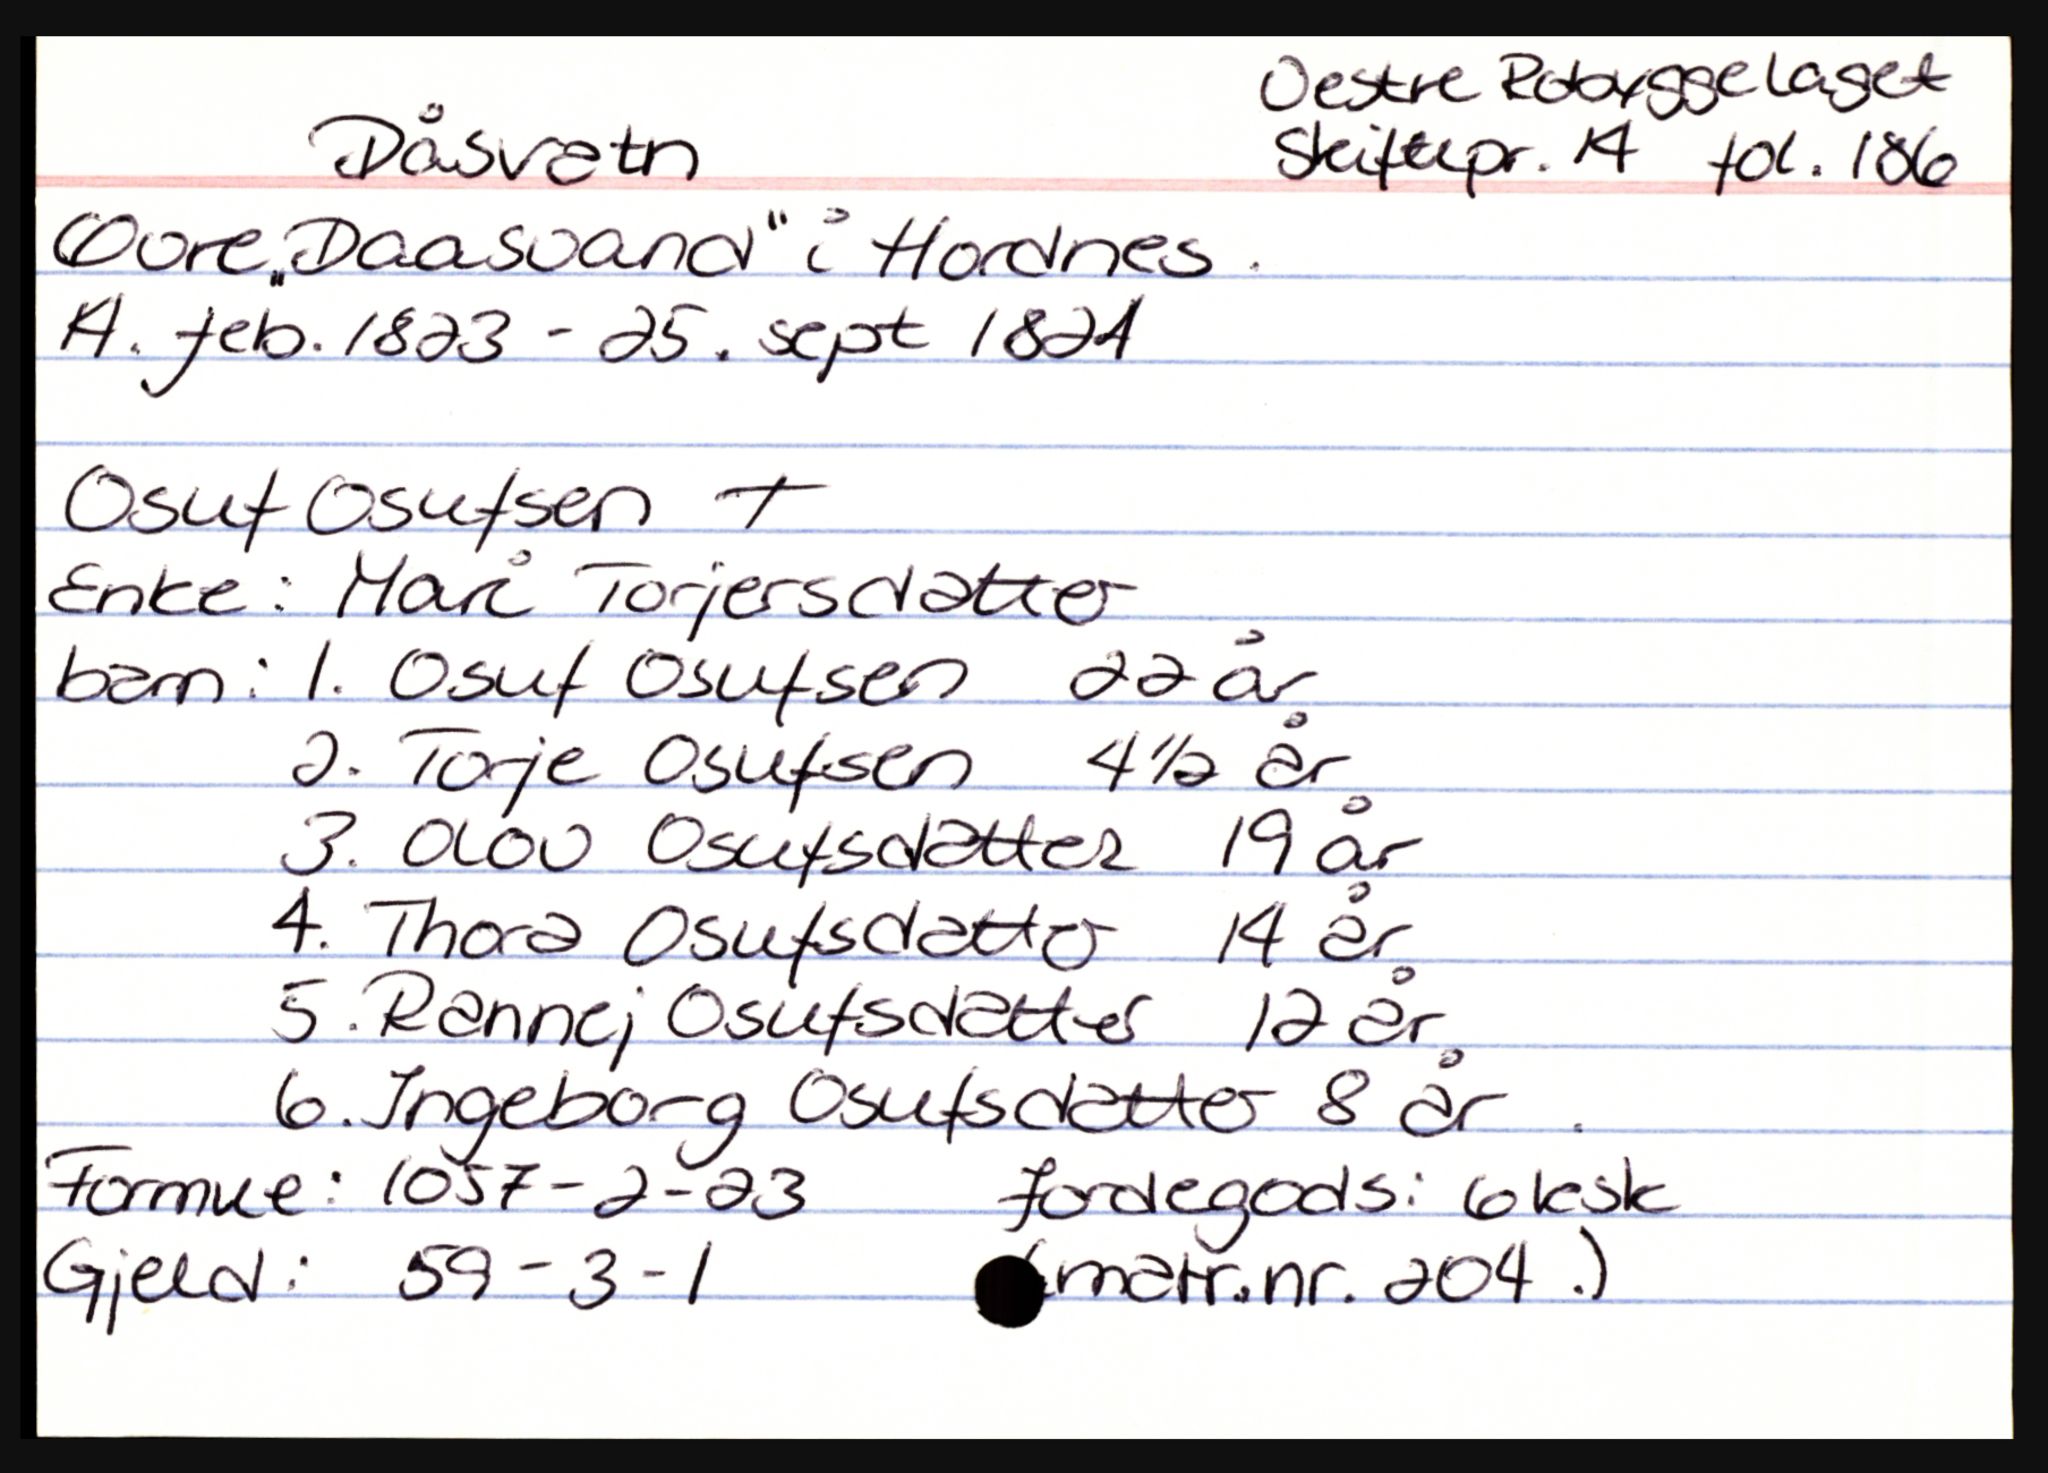 Oestre Robyggelaget
Dåsvatn Skiftepr. 14 fol. 186
Øvre „Daasvand" i Hordnes.
14. feb. 1823 - 25. sept 1824
Osuf Osufsen †
Enke: Mari Torjersdatter
barn: 1. Osuf Osufsen 22 år
2. Torje Osufsen 4 1/2 år
3. Olov Osufsdatter 19 år
4. Thora Osufsdatter 14 år
5. Rannej Osufsdatter 12 år
6. Ingeborg Osufsdatter 8 år.
Formue: 1057-2-23 Jordegods: 6 ksk
Gjeld: 59-3-1 (matr.nr. 204.)